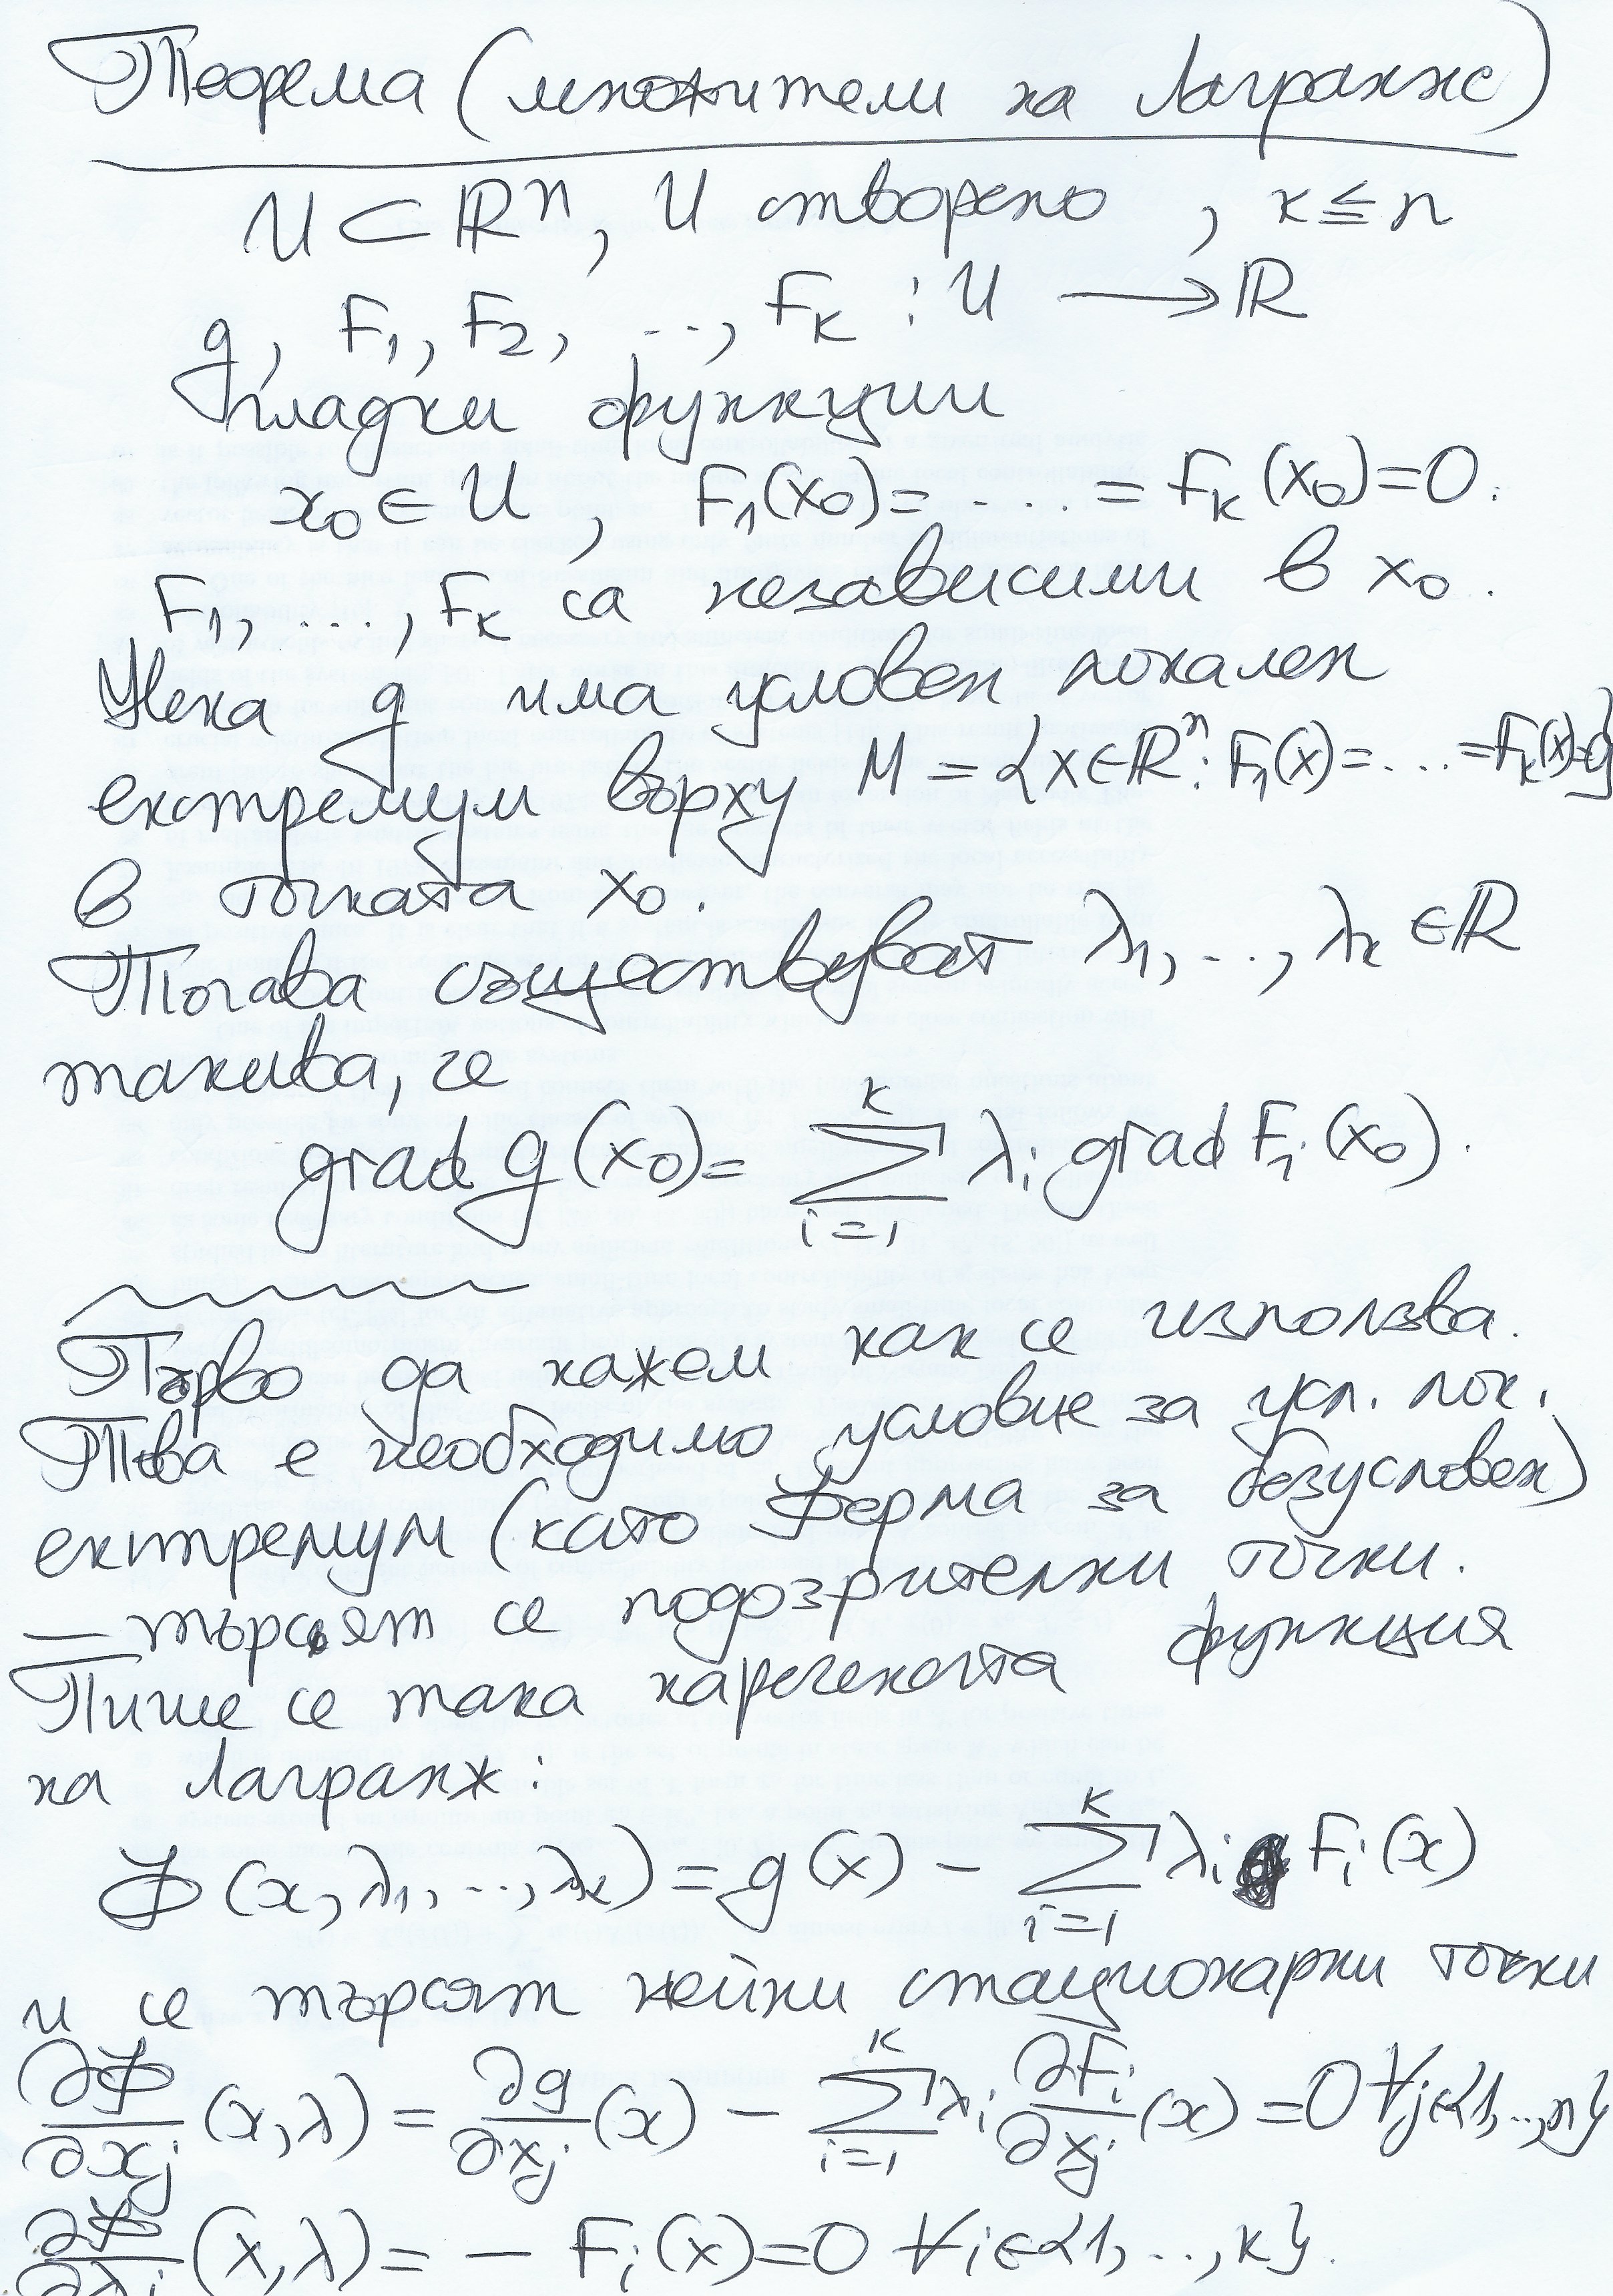 Теорема (множители на Лагранж)
U ⊂ ℝⁿ, U отворено, k ≦ n
g, F₁, F₂, ..., Fₖ : U → ℝ
гладки функции
x₀ ∈ U, F₁(x₀) = .... = Fₖ(x₀) = 0.
F₁, ..., Fₖ са независими в x₀.
Нека g има условен локален
екстремум върху M = {x ∈ ℝⁿ : F₁(x) = ... = Fₖ(x) = 0}
в точката x₀.
Тогава съществуват λ₁, ..., λₖ ∈ ℝ
такива, че
grad g(x₀) = ∑_{i=1}^{k} λᵢ grad Fᵢ(x₀).
Първо да кажем как се използва.
Това е необходимо условие за усл. лок.
екстремум (като Ферма за безусловен)
— търсят се подозрителни точки.
Пише се така наречената функция
на Лагранж:
Φ(x, λ₁, ..., λₖ) = g(x) − ∑_{i=1}^{k} λᵢ Fᵢ(x)
и се търсят нейни стационарни точки
∂Φ/∂xⱼ (x, λ) = ∂g/∂xⱼ (x) − ∑_{i=1}^{k} λᵢ ∂Fᵢ/∂xⱼ (x) = 0 ∀j∈{1, ..., n}
∂Φ/∂λᵢ (x, λ) = − Fᵢ(x) = 0 ∀i∈{1, ..., k}.